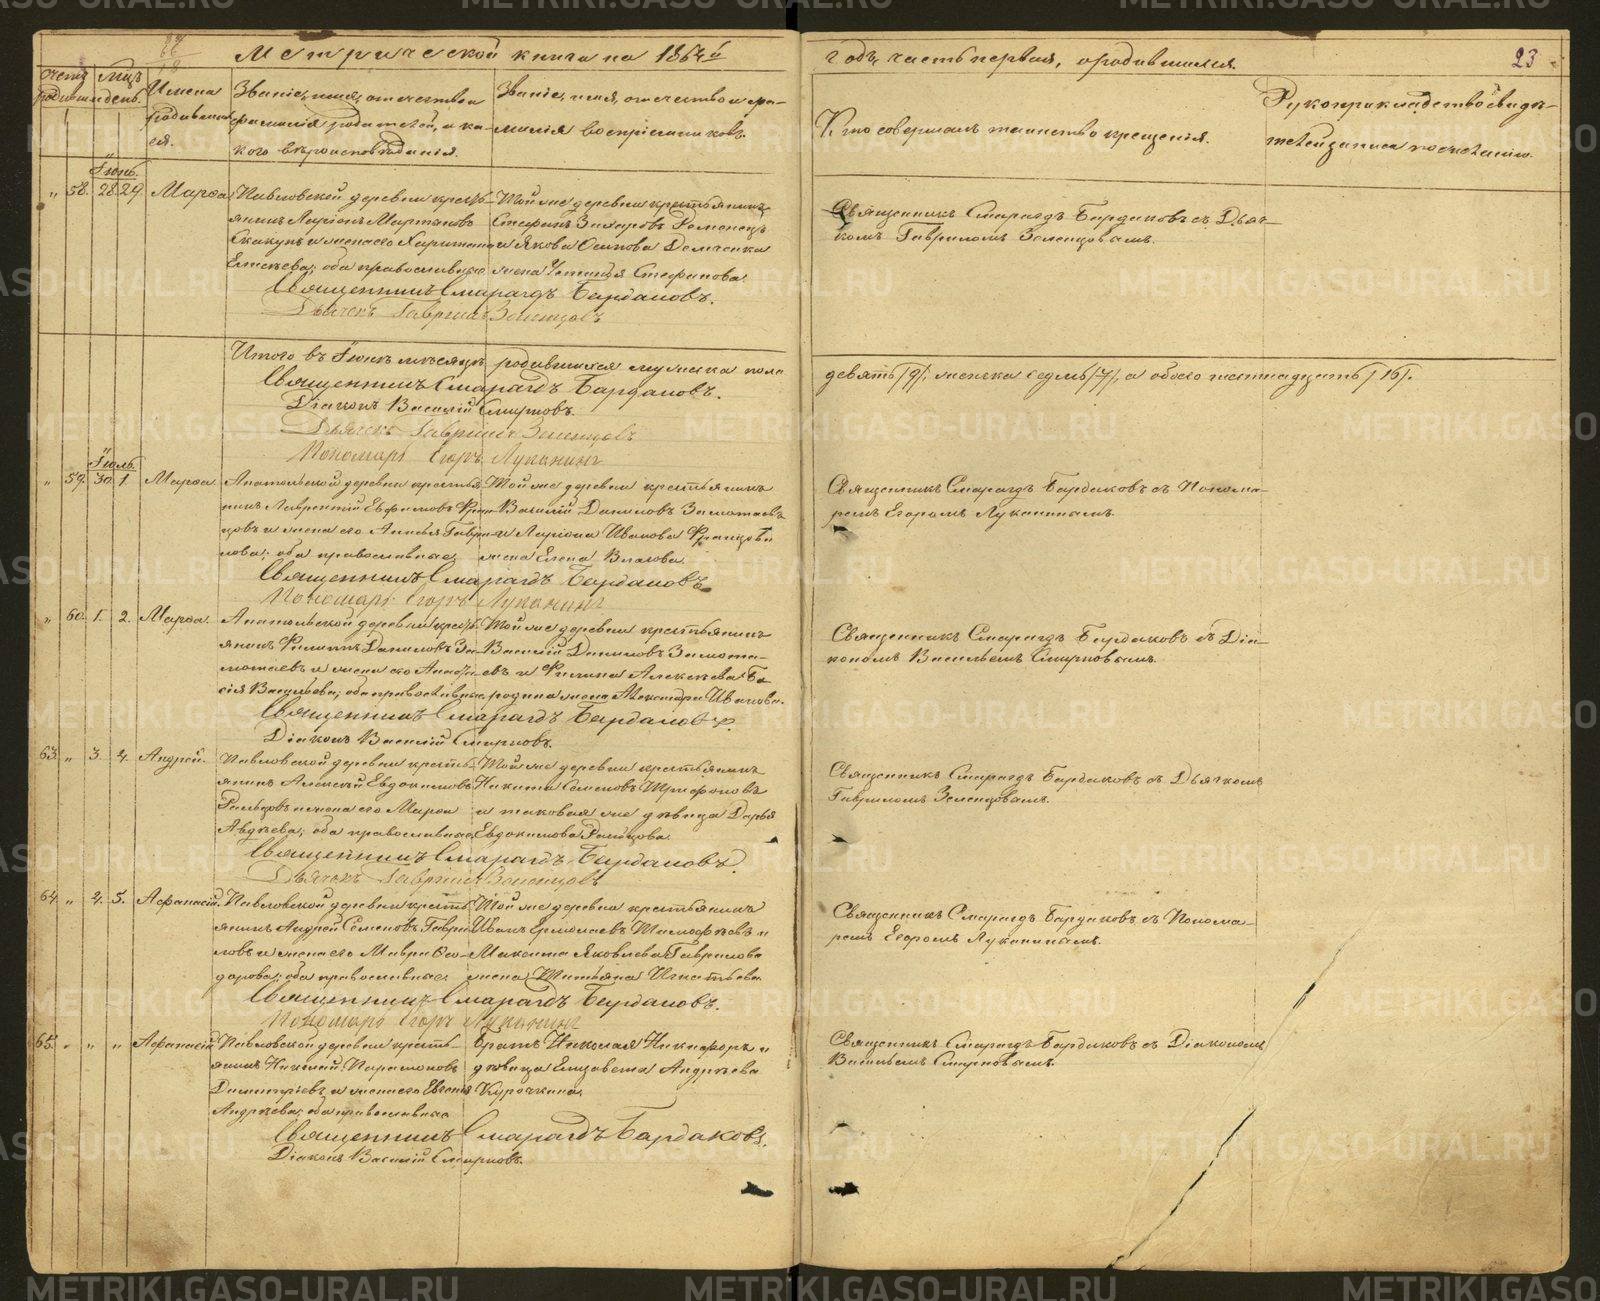 Метрической книги на 1864й
годъ, часть первая, о родившихся.
23
Счетъ родивш.
Мцъ и день.
Имена родившихся.
Званіе, имя, отчество и фамилія родителей, и какого вѣроисповѣданія.
Званіе, имя, отчество и фамилія воспріемниковъ.
Кто совершалъ таинство крещенія.
Рукоприкладство свидѣтелей записи по желанію.
Іюнь.
" 58. 28. 29. Марѳа
Павловской деревни крестьянинъ
Скакунъ и жена его Харитина
Елисѣева; оба православные
Той же деревни крестьянинъ
Стефанъ Захаровъ Ременецъ
и Якова Осипова Демченка
жена Устинья Стефанова
Священникъ Смарагдъ Бардаковъ съ Дьячкомъ Гавриломъ Зеленцовымъ.
Священникъ Смарагдъ Бардаковъ.
Дьячекъ Гавриилъ Зеленцовъ
Итого въ Іюнѣ мѣсяцѣ родившихся мужеска пола
девять /9/, женска седмь /7/, а обоего шестнадцать /16/.
Священникъ Смарагдъ Бардаковъ.
Діаконъ Василій Смирновъ.
Дьячекъ Гавриилъ Зеленцовъ
Пономарь Егоръ Луканинъ
Іюль.
" 59. 30. 1. Марѳа.
Анатольской деревни крестьянинъ Лаврентій Евфимовъ
и жена его Анисья Гаврилова; оба православные
Той же деревни крестьянинъ
Василій Даниловъ Замотаевъ
и Ларіона Иванова Францова
жена Елена Власова.
Священникъ Смарагдъ Бардаковъ съ Пономаремъ Егоромъ Луканинымъ.
Священникъ Смарагдъ Бардаковъ
Пономарь Егоръ Луканинъ
" 60. 1. 2. Марѳа.
Анатольской деревни крестьянинъ Филиппъ Даниловъ Замотаевъ и жена его Анастасія Васильева; оба православные
Той же деревни крестьянинъ
Василій Даниловъ Замотаевъ и Филипа Алексѣева Бородина жена Александра Иванова.
Священникъ Смарагдъ Бардаковъ съ Діакономъ Васильемъ Смирновымъ.
Священникъ Смарагдъ Бардаковъ
Діаконъ Василій Смирновъ.
63. " 3. 4. Андрей.
Павловской деревни крестьянинъ Алексѣй Евдокимовъ
и жена его Марѳа
Авдѣева; оба православные
Той же деревни крестьянинъ
Никита Семеновъ Трифоновъ
и таковая же дѣвица Дарья
Евдокимова
Священникъ Смарагдъ Бардаковъ съ Дьячкомъ
Гавриломъ Зеленцовымъ.
Священникъ Смарагдъ Бардаковъ.
Дьячекъ Гавриилъ Зеленцовъ
64. " 4. 5. Аѳанасій.
Павловской деревни крестьянинъ Андрей Семеновъ Гавриловъ и жена его Мавра Ѳеодорова; оба православные
Той же деревни крестьянинъ
Иванъ Ермолаевъ Тимофѣевъ и
Максима Яковлева Гаврилова
жена Татьяна Игнатьева
Священникъ Смарагдъ Бардаковъ съ Пономаремъ Егоромъ Луканинымъ.
Священникъ Смарагдъ Бардаковъ.
Пономарь Егоръ Луканинъ
65. " " " Аѳанасій
Павловской деревни крестьянинъ
Парамоновъ
Димитріевъ и жена его Евгенія
Андрѣева; оба православные
Братъ Николая Никифоръ и
дѣвица Елизавета Андрѣева
Курочкина.
Священникъ Смарагдъ Бардаковъ съ Діакономъ
Васильемъ Смирновымъ.
Священникъ Смарагдъ Бардаковъ.
Діаконъ Василій Смирновъ.
METRIKI.GASO-URAL.RU